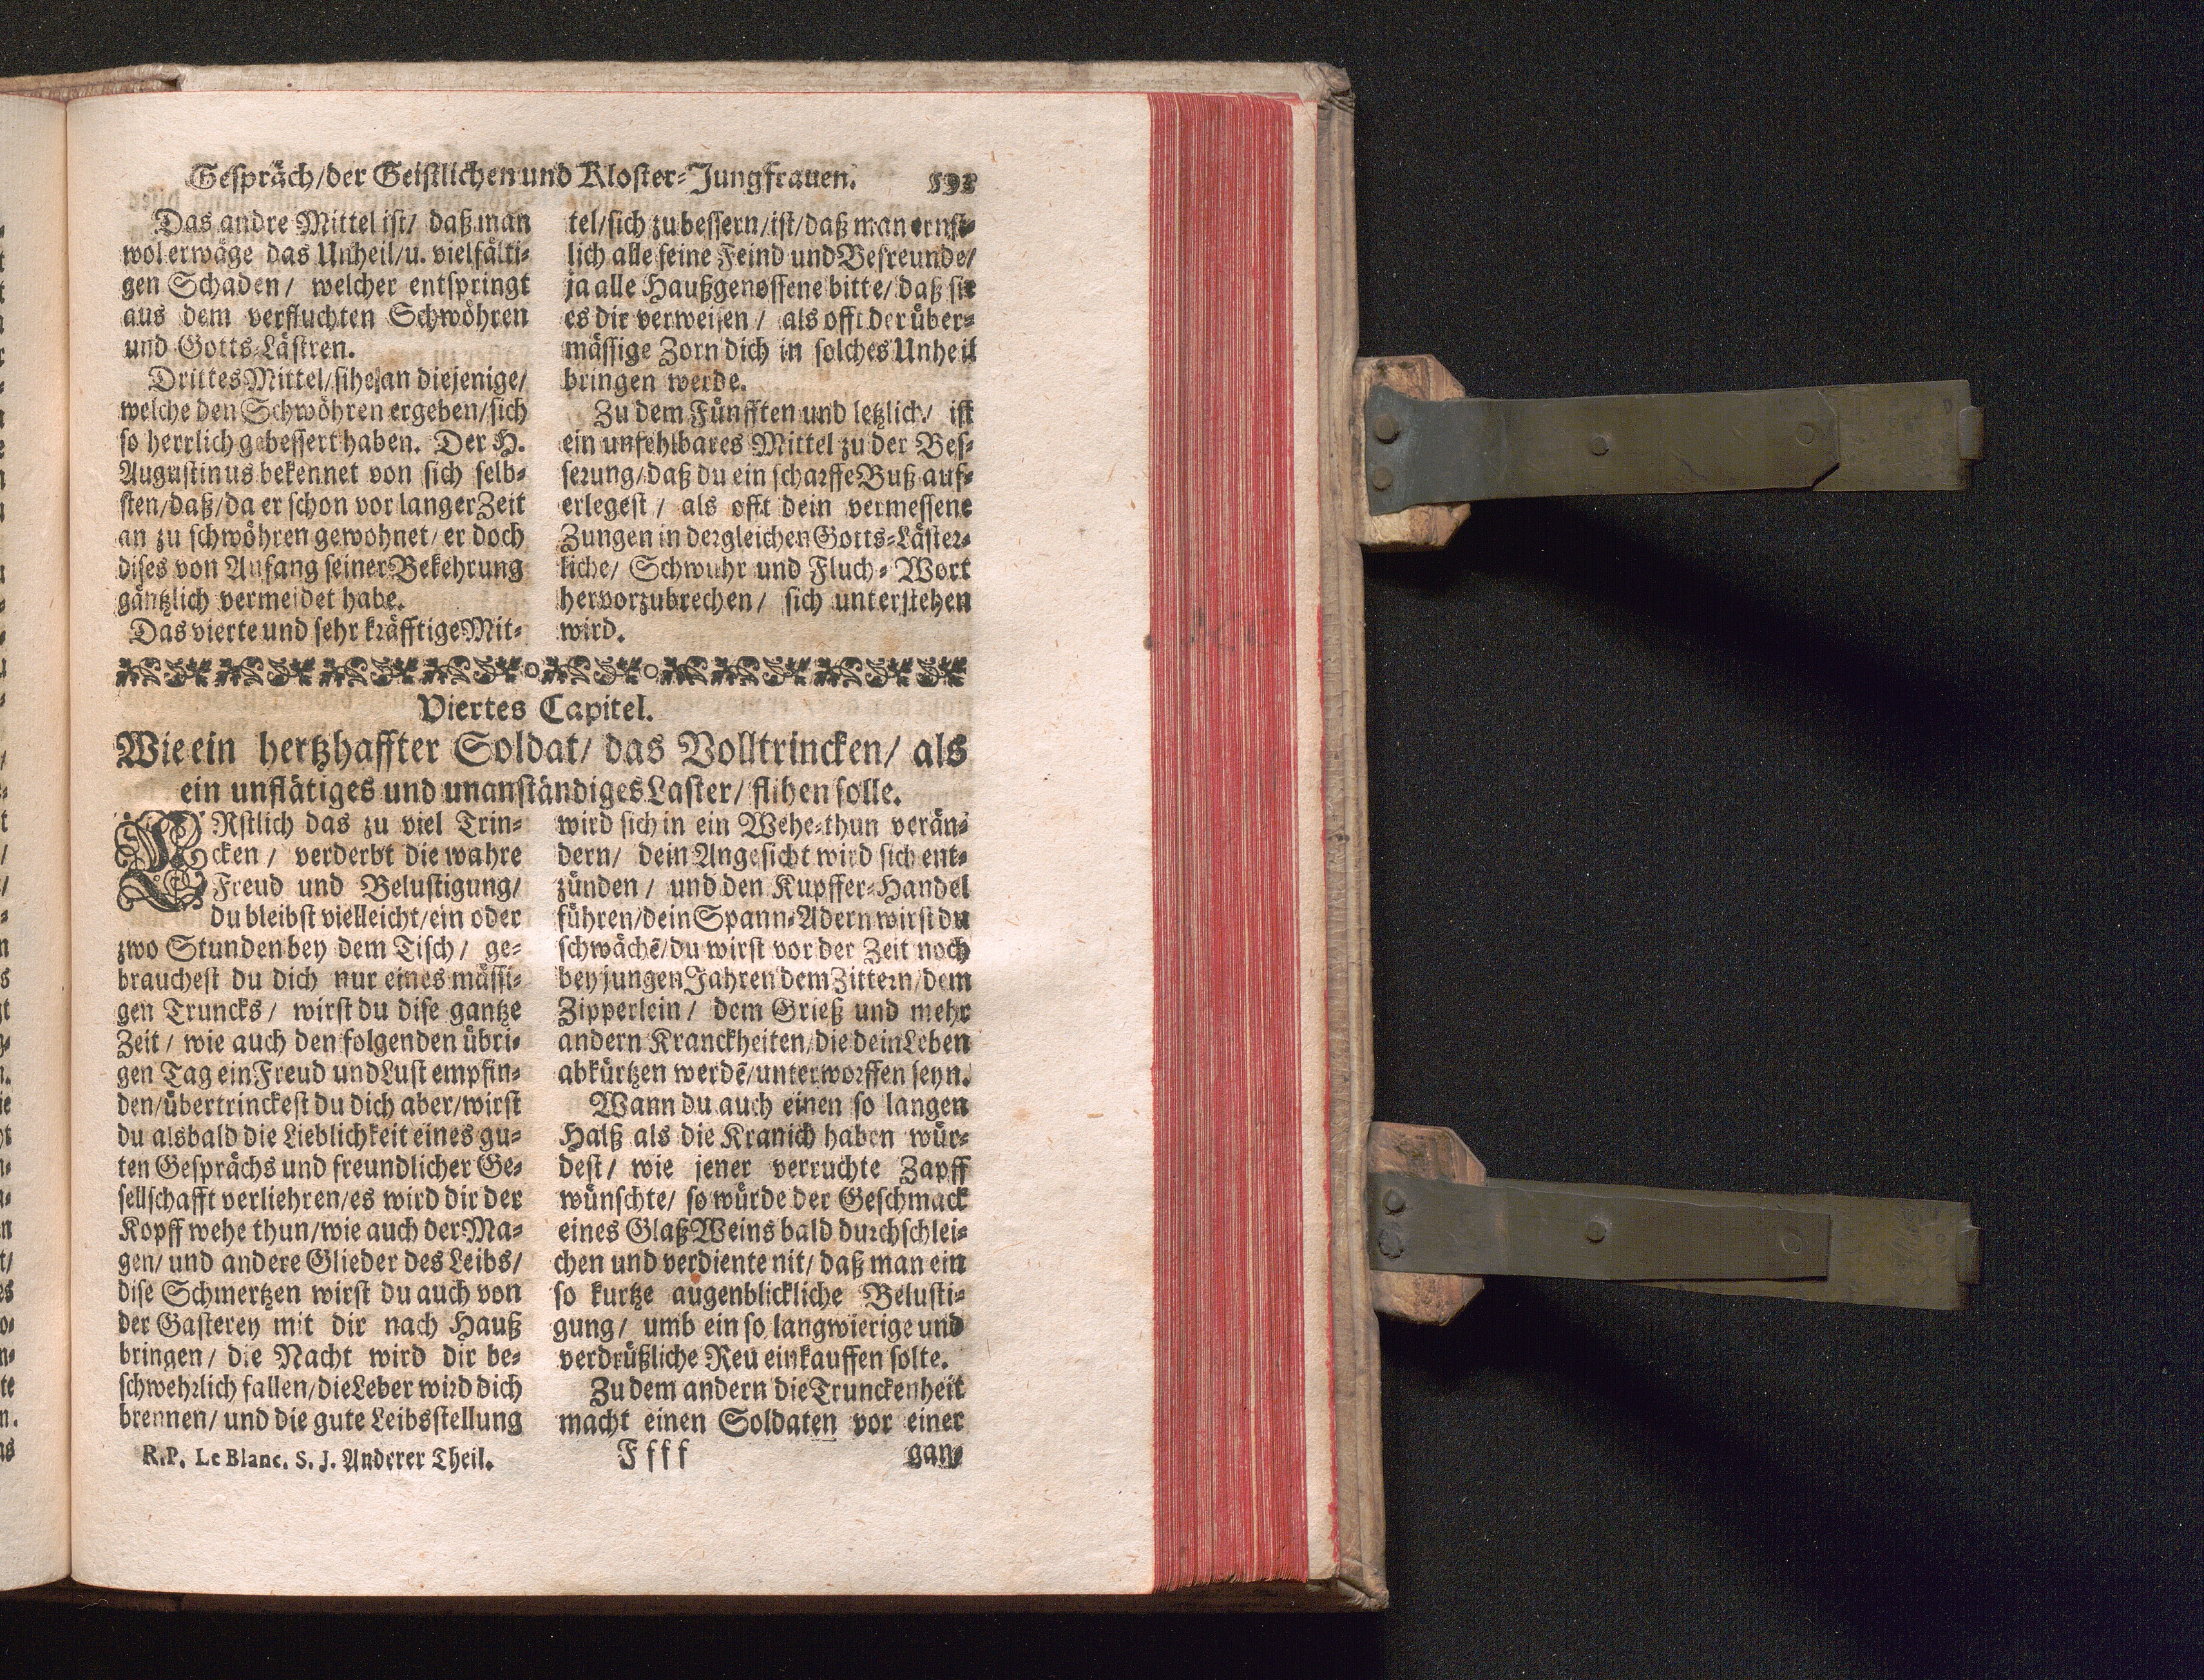 Gespräch/der Geistlichen und Kloster-Jungfrauen.
Das andre Mittel ist/ daß man
wol erwäge das Unheil/u. vielfälti-
gen Schaden/ welcher entspringt
aus dem verfluchten Schwöhren
und Gotts-Lästren.
Drittes Mittel/sihe an diejenige/
welche den Schwöhren ergeben/sich
so herrlich gebessert haben. Der H.
Augustinus bekennet von sich selb-
sten/daß/da er schon vor langer Zeit
an zu schwöhren gewohnet/er doch
dises von Anfang seiner Bekehrung
gäntzlich vermeidet habe.
Das vierte und sehr kräfftige Mit-
tel/sich zu bessern/ist/daß man ernst-
lich alle seine Feind und Befreunde/
ja alle Haußgenossene bitte/daß sie
es dir verweisen/ als offt der über-
mässige Zorn dich in solches Unheil
bringen werde.
Zu dem Fünfften und letzlich/ ist
ein unfehlbares Mittel zu der Bes-
serung/daß du ein scharffe Buß auf-
erlegest/ als offt dein vermessene
Zungen in dergleichen Gotts-Läster-
liche/ Schwuhr und Fluch-Wort
hervorzubrechen/ sich unterstehen
wird.
Viertes Capitel.
Wie ein hertzhaffter Soldat/ das Volltrincken/ als
ein unflätiges und unanständiges Laster/ flihen solle.
ERstlich das zu viel Trin-
cken/ verderbt die wahre
Freud und Belustigung/
du bleibst vielleicht/ein oder
zwo Stunden bey dem Tisch/ ge-
brauchest du dich nur eines mässi-
gen Truncks/ wirst du dise gantze
Zeit/ wie auch den folgenden übri-
gen Tag ein Freud und Lust empfin-
den/übertrinckest du dich aber/wirst
du alsbald die Lieblichkeit eines gu-
ten Gesprächs und freundlicher Ge-
sellschafft verliehren/es wird dir der
Kopff wehe thun/wie auch der Ma-
gen/ und andere Glieder des Leibs/
dise Schmertzen wirst du auch von
der Gasterey mit dir nach Hauß
bringen/ die Nacht wird dir be-
schwehrlich fallen/die Leber wird dich
brennen/ und die gute Leibsstellung
wird sich in ein Wehe-thun verän-
dern/ dein Angesicht wird sich ent-
zünden/ und den Kupffer-Handel
führen/dein Spann-Adern wirst du
schwäche͂/du wirst vor der Zeit noch
bey jungen Jahren dem Zittern/dem
Zipperlein/ dem Grieß und mehr
andern Kranckheiten/die dein Leben
abkürtzen werde͂/unterworffen seyn.
Wann du auch einen so langen
Halß als die Kranich haben wür-
dest/ wie jener verruchte Zapff
wünschte/ so würde der Geschmack
eines Glaß Weins bald durchschlei-
chen und verdiente nit/ daß man ein
so kurtze augenblickliche Belusti-
gung/ umb ein so langwierige und
verdrüßliche Reu einkauffen solte.
Zu dem andern die Trunckenheit
macht einen Soldaten vor einer
R.P. Le Blanc. S. J. Anderer Theil. Ffff gan-